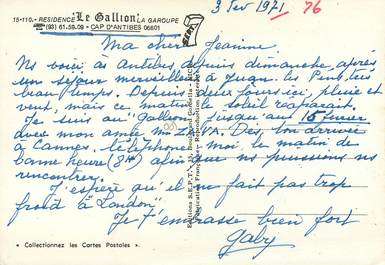 15-110.- RESIDENCE "Le Gallion" LA GAROUPE
(93) 61.59.09 - CAP D'ANTIBES 06601
3 Fev 1971 76
Ma chere Jeanine
Ns voici as Antibes depuis dimanche, après
un séjour merveilleux à Juan. les Pins, très
beau temps. Depuis deux jours ici, pluie et
vent, mais ce matin le soleil réapparait.
Je suis au "Gallion" jusqu'au 15 février
avec mon amie Dès ton arrivée
à Cannes, téléphone moi, le matin de
bonne heure (8H) afin que ns puissions ns
rencontrer.
J'espère qu'il ne fait pas trop
froid à "London"
Je t'embrasse bien fort
Gaby
« Collectionnez les Cartes Postales »